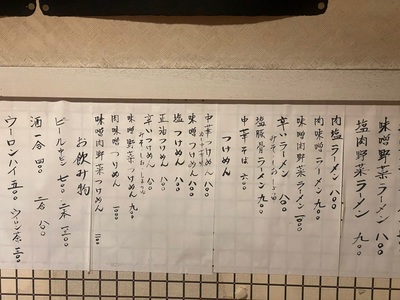 味噌野菜ラーメン 八〇〇
塩肉野菜ラーメン 九〇〇
肉塩ラーメン 八〇〇
肉味噌ラーメン 九〇〇
味噌肉野菜ラーメン 一〇〇〇
辛いラーメン 八〇〇
みそ・しお・しょうゆ
塩豚骨ラーメン 九〇〇
中華そば 六〇〇
つけめん
中華つけめん 八〇〇
味噌つけめん 八〇〇
塩つけめん 八〇〇
正油つけめん 八〇〇
辛いつけめん 八〇〇
みそ・しお・しょうゆ
味噌野菜つけめん 九〇〇
肉味噌つけめん
味噌肉野菜つけめん
お飲み物
ビール中ビン 七〇〇 二本 一三〇〇
酒一合 四〇〇 二合 八〇〇
ウーロンハイ 五〇〇 ウーロン茶 三〇〇